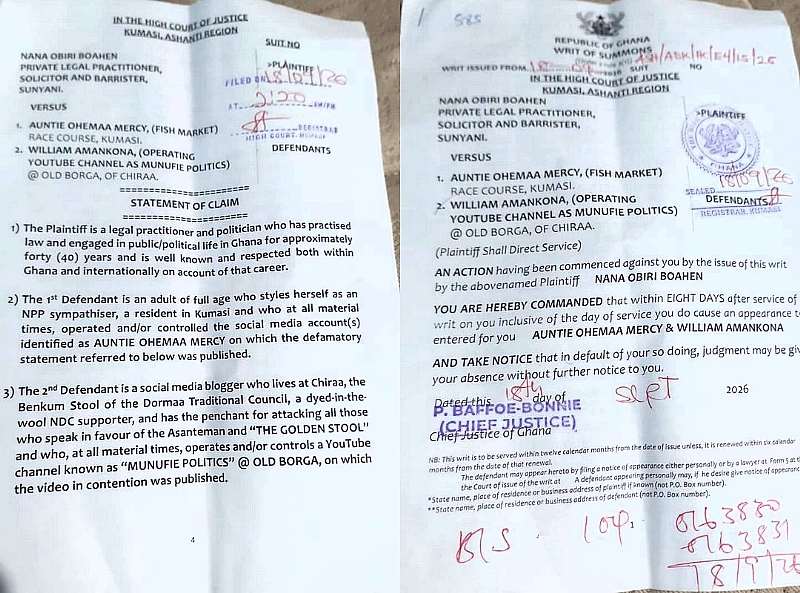 IN THE HIGH COURT OF JUSTICE
KUMASI, ASHANTI REGION
SUIT NO
NANA OBIRI BOAHEN
PRIVATE LEGAL PRACTITIONER,
SOLICITOR AND BARRISTER,
SUNYANI.
>PLAINTIFF
FILED ON 18/09/26
AT 2:20
REGISTRAR
HIGH COURT, KUMASI
VERSUS
1. AUNTIE OHEMAA MERCY, (FISH MARKET)
RACE COURSE, KUMASI.
2. WILLIAM AMANKONA, (OPERATING
YOUTUBE CHANNEL AS MUNUFIE POLITICS)
@ OLD BORGA, OF CHIRAA.
DEFENDANTS
STATEMENT OF CLAIM
1) The Plaintiff is a legal practitioner and politician who has practised
law and engaged in public/political life in Ghana for approximately
forty (40) years and is well known and respected both within
Ghana and internationally on account of that career.
2) The 1st Defendant is an adult of full age who styles herself as an
NPP sympathiser, a resident in Kumasi and who at all material
times, operated and/or controlled the social media account(s)
identified as AUNTIE OHEMAA MERCY on which the defamatory
statement referred to below was published.
3) The 2nd Defendant is a social media blogger who lives at Chiraa, the
Benkum Stool of the Dormaa Traditional Council, a dyed-in-the-
wool NDC supporter, and has the penchant for attacking all those
who speak in favour of the Asanteman and "THE GOLDEN STOOL"
and who, at all material times, operates and/or controls a YouTube
channel known as "MUNUFIE POLITICS" @ OLD BORGA, on which
the video in contention was published.
4
585
REPUBLIC OF GHANA
WRIT OF SUMMONS
WRIT ISSUED FROM 18 2016 SUIT NO
IN THE HIGH COURT OF JUSTICE
KUMASI, ASHANTI REGION
NANA OBIRI BOAHEN
PRIVATE LEGAL PRACTITIONER,
SOLICITOR AND BARRISTER,
SUNYANI.
>PLAINTIFF
GHANA
VERSUS
1. AUNTIE OHEMAA MERCY, (FISH MARKET)
RACE COURSE, KUMASI.
2. WILLIAM AMANKONA, (OPERATING
YOUTUBE CHANNEL AS MUNUFIE POLITICS)
@ OLD BORGA, OF CHIRAA.
SEALED 18/09/26
DEFENDANTS
REGISTRAR, KUMASI
(Plaintiff Shall Direct Service)
AN ACTION having been commenced against you by the issue of this writ
by the abovenamed Plaintiff NANA OBIRI BOAHEN
YOU ARE HEREBY COMMANDED that within EIGHT DAYS after service of
writ on you inclusive of the day of service you do cause an appearance to
entered for you AUNTIE OHEMAA MERCY & WILLIAM AMANKONA
AND TAKE NOTICE that in default of your so doing, judgment may be giv
your absence without further notice to you.
Dated this 18th day of SEPT 2026
P. BAFFOE-BONNIE
(CHIEF JUSTICE)
Chief Justice of Ghana
NB: This writ is to be served within twelve calendar months from the date of issue unless, it is renewed within six calendar
months from the date of that renewal.
The defendant may appear hereto by filing a notice of appearance either personally or by a lawyer at Form 5 at th
the Court of issue of the writ at A defendant appearing personally may, if he desire give notice of appearance
*State name, place of residence or business address of plaintiff if known (not P.O. Box number).
**State name, place of residence or business address of defendant (not P.O. Box number).
0163830
0163831
18/9/26